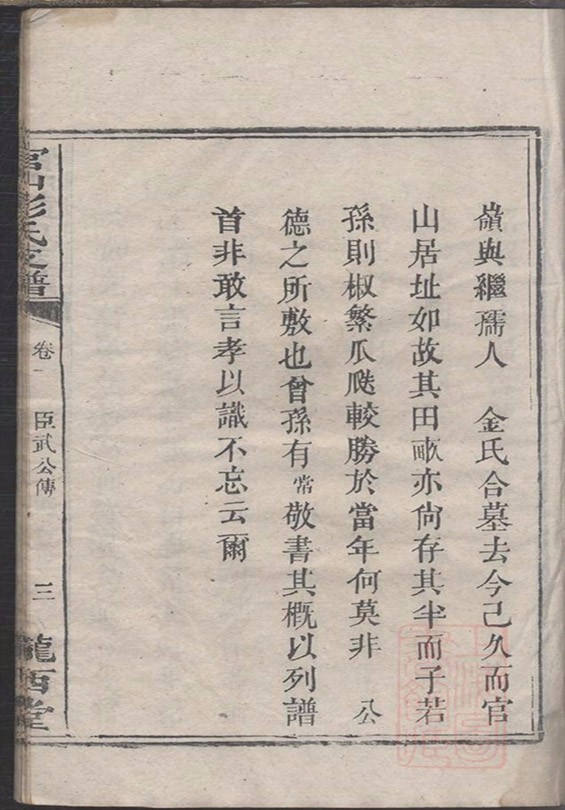 嶺與繼孺人　金氏合墓去今已久而官
山居址如故其田畝亦尙存其半而子若
孫則椒繁瓜瓞較勝於當年何莫非　公
德之所敷也曾孫有常敬書其概以列譜
首非敢言孝以識不忘云爾
官山彭氏支譜
卷一
臣武公傳
三
隴西堂